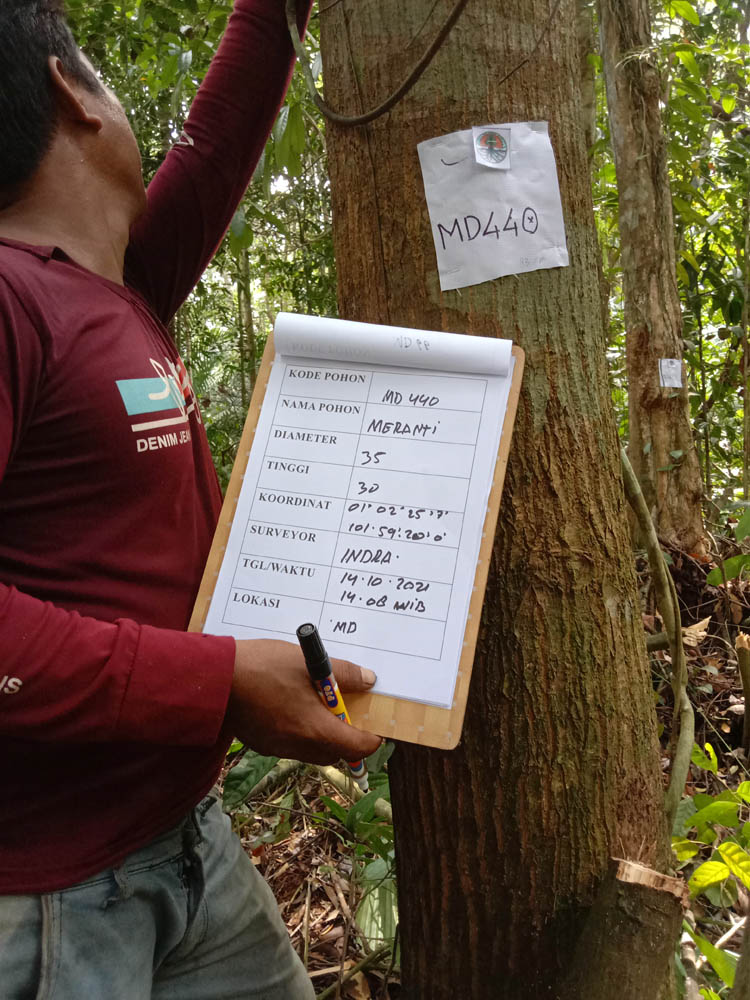 MD440
KODE POHON MD 440
NAMA POHON MERANTI
DIAMETER 35
TINGGI 30
KOORDINAT 01°02'25.7"
101.59:20.0
SURVEYOR INDRA.
TGL/WAKTU 14.10.2021
14.08 WIB
LOKASI MD
DENIM JE